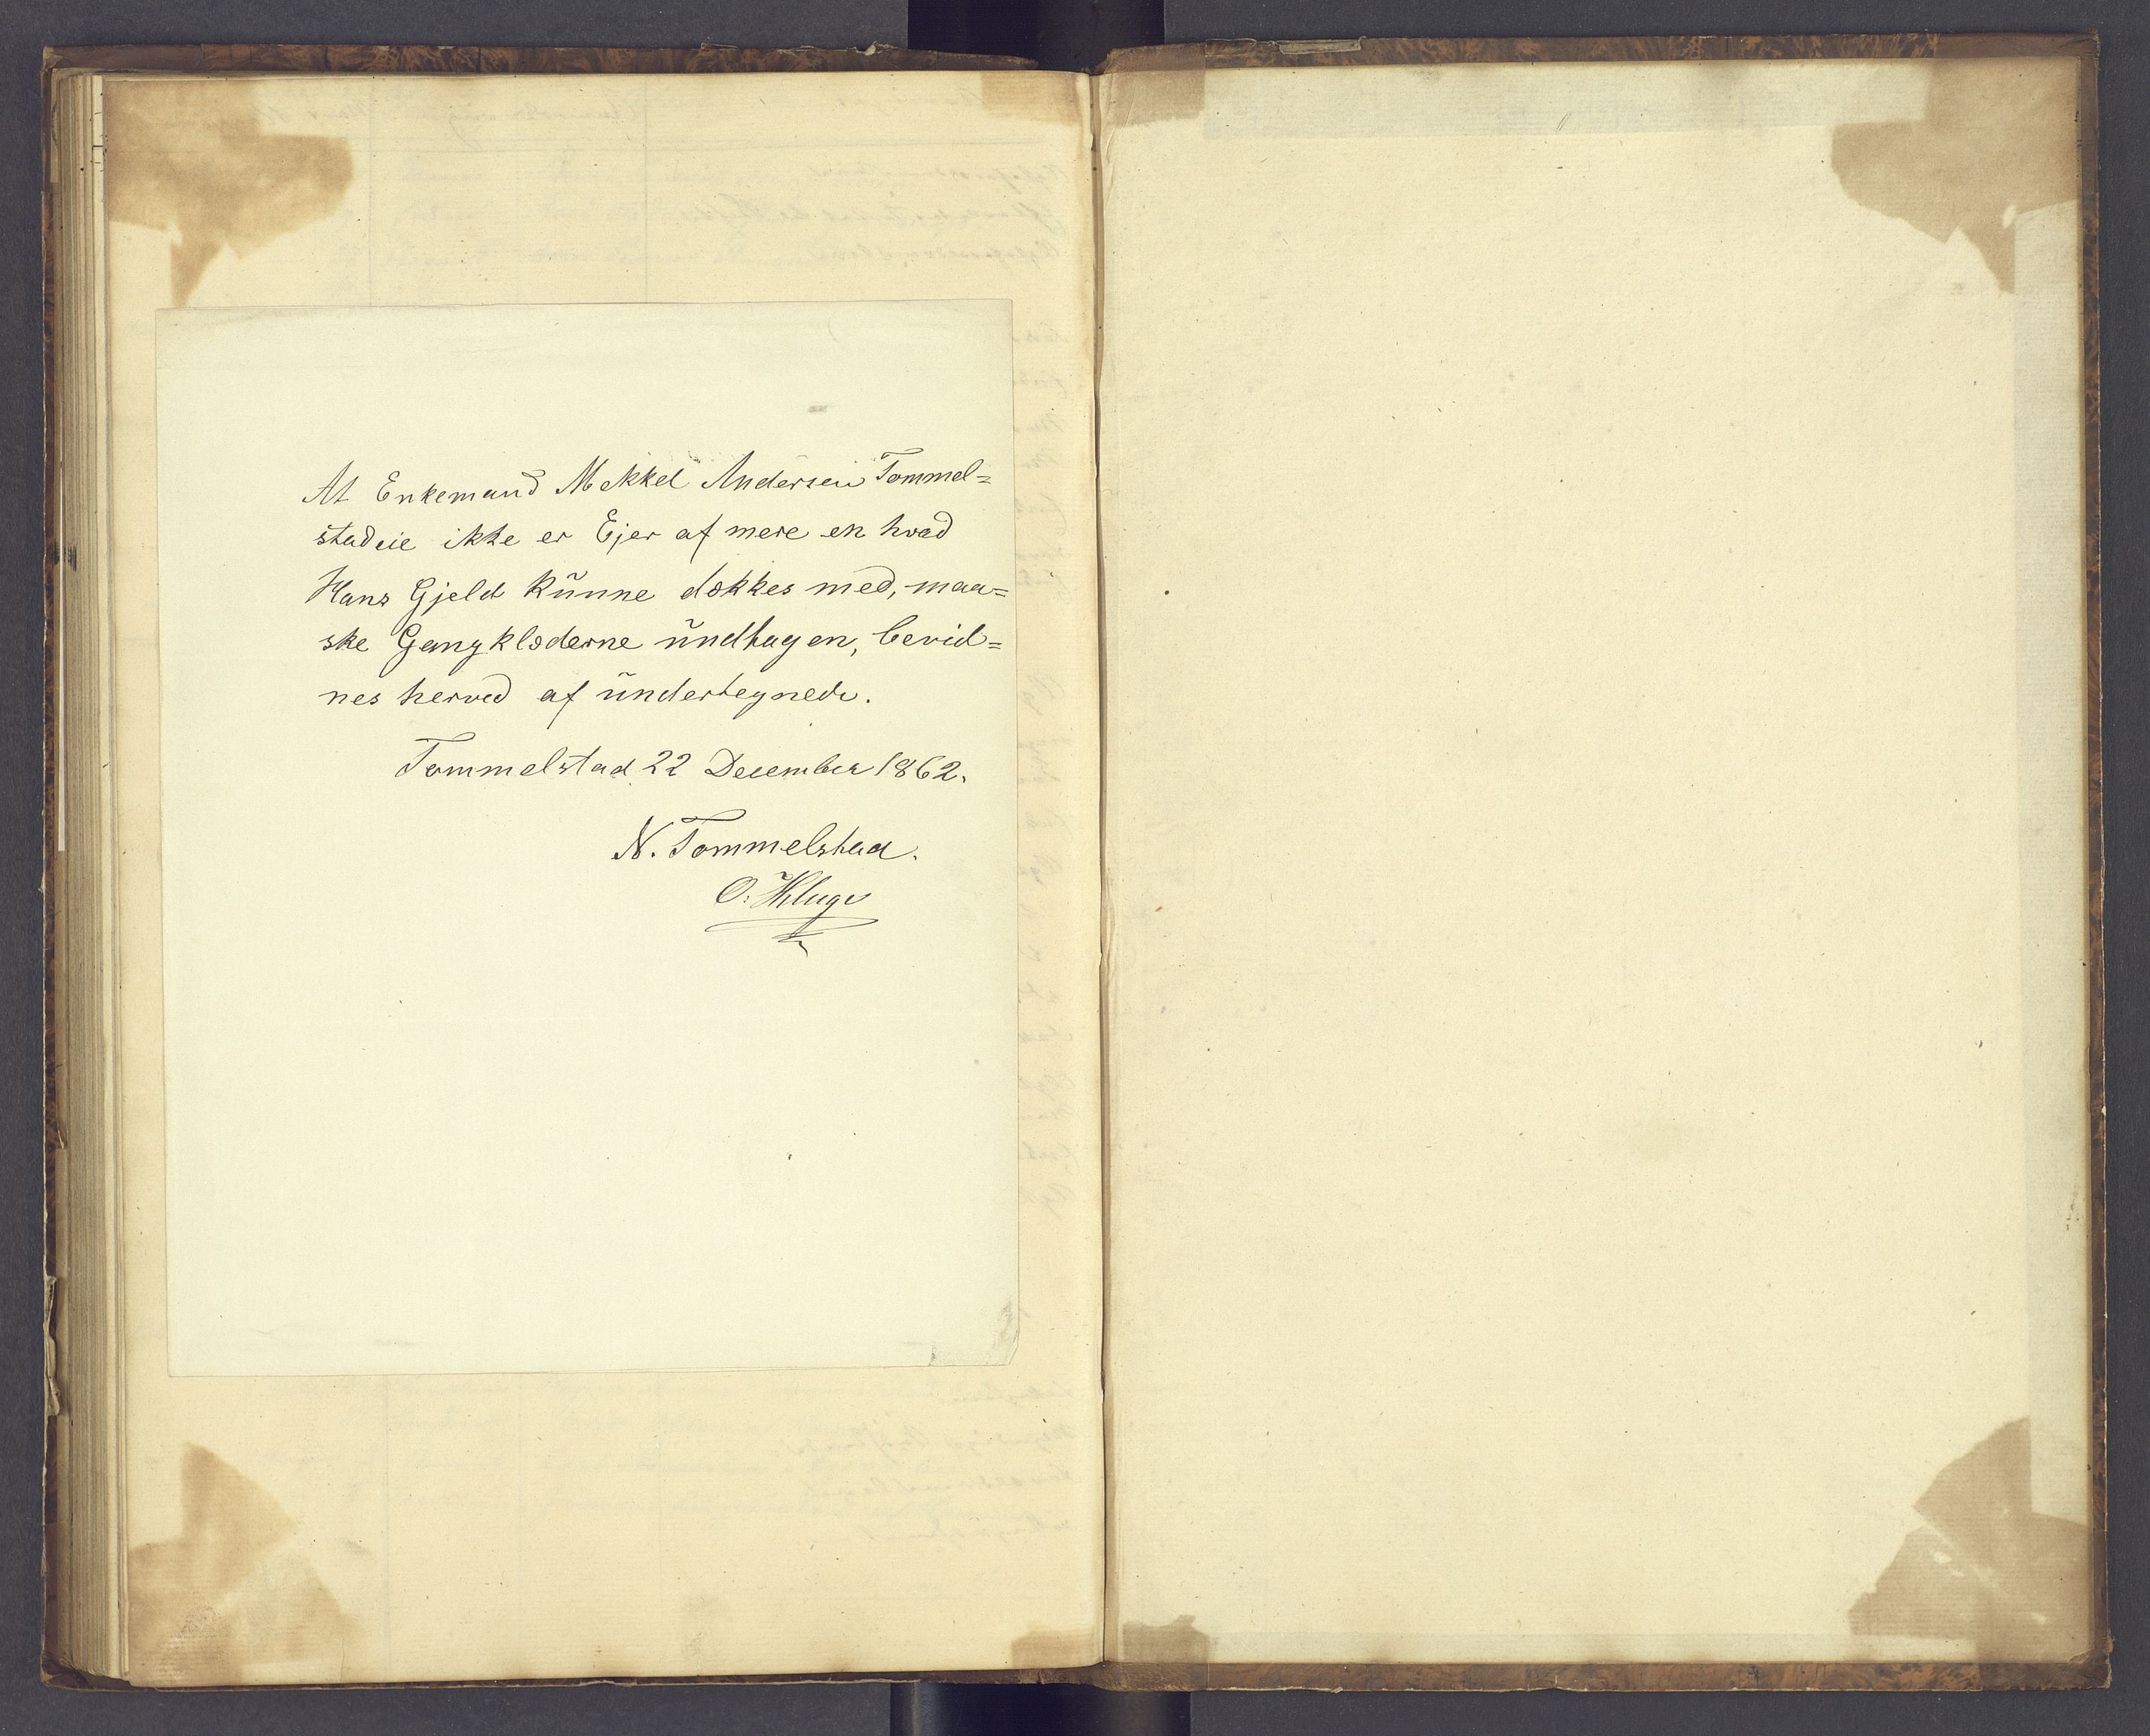 At Enkemand Mekkel Andersen Tommel=
stadeie ikke er Ejer af mere en hvad
Hans Gjeld kũnne dækkes med, maa=
ske Gangklæderne ũndtagen, bevid=
nes herved af ũndertegnede.
Tommelstad 22 December 1862.
N. Tommelstad.
O. Kluge